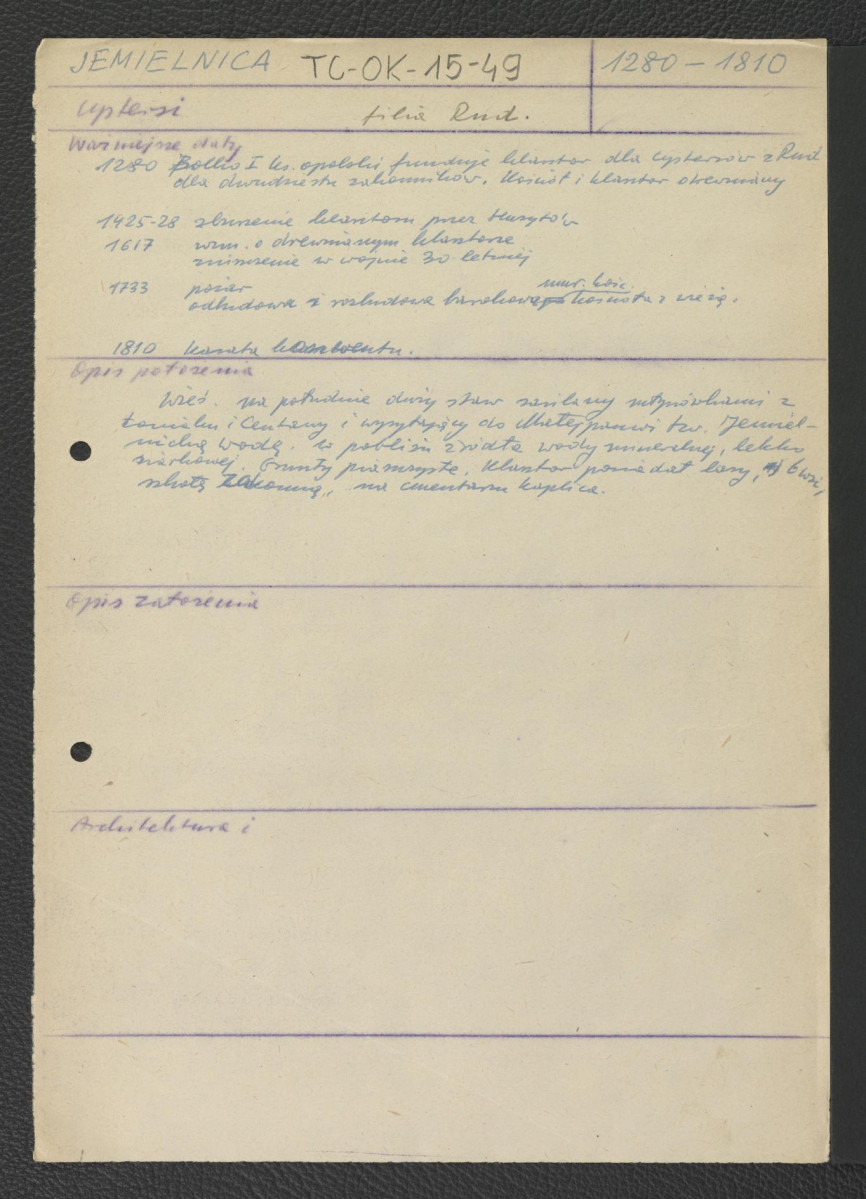 JEMIELNICA TC-OK-15-49 1280 – 1810
cystersi filia Rud.
Ważniejsze daty
1280 Bolko I ks. opolski funduje klasztor dla cystersów z Rud
dla dwudziestu zakonników. Kościół i klasztor drewniany
1425-28 zburzenie klasztoru przez Husytów
1617 wzm. o drewnianym klasztorze
zniszczenie w wojnie 30-letniej
1733 pożar
mur. kośc.
odbudowa i rozbudowa barokowa kościoła z wieżą.
1810 kasata konwentu.
Opis położenia
Wieś. na południe duży staw zasilany młynówkami z
Łomialni i Centawy i wysyłający do Małejpanwi tzw. Jemiel-
nicką wodę. w pobliżu źródła wody mineralnej, lekko
siarkowej. Grunty piaszczyste. Klasztor posiadał lasy, 6 wsi,
szkołę zakonną, na cmentarzu kaplica.
Opis założenia
Architektura i